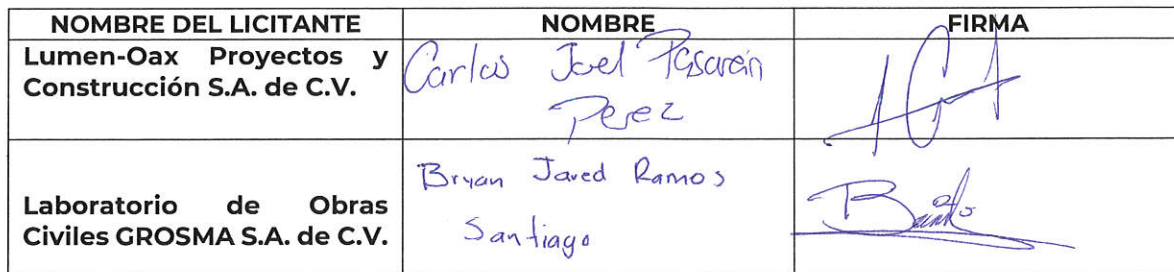 NOMBRE DEL LICITANTE NOMBRE FIRMA
Lumen-Oax Proyectos y
Construcción S.A. de C.V.
Carlos Joel Pasarán
Perez
Laboratorio de Obras
Civiles GROSMA S.A. de C.V.
Bryan Jared Ramos
Santiago